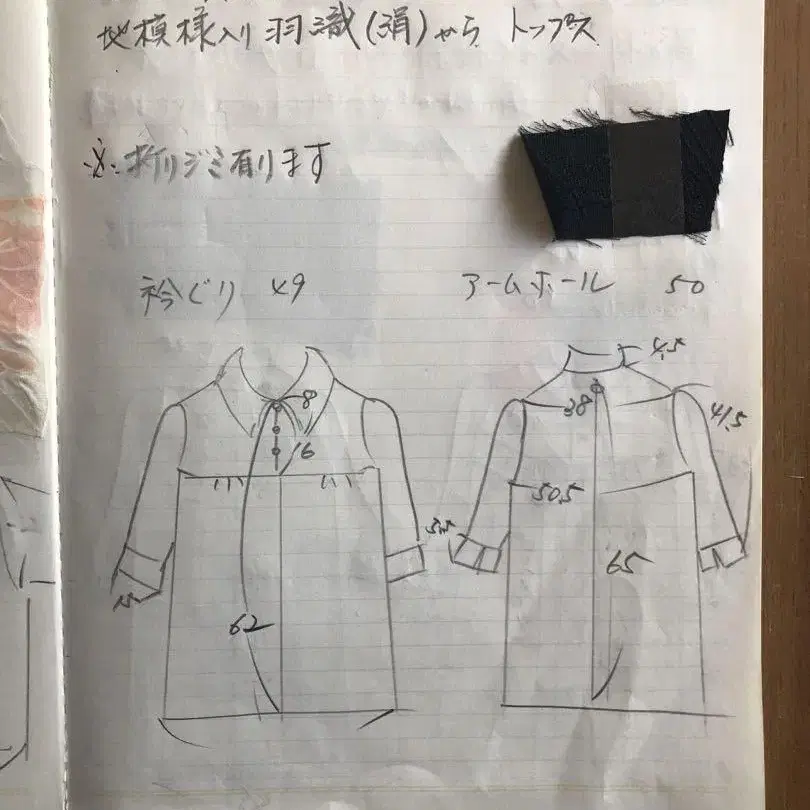 地模様入り羽織(絹)から トップス
※折りジミ有ります
衿ぐり 49
アームホール 50
4.5
8
38
41.5
16
50.5
5.5
65
62